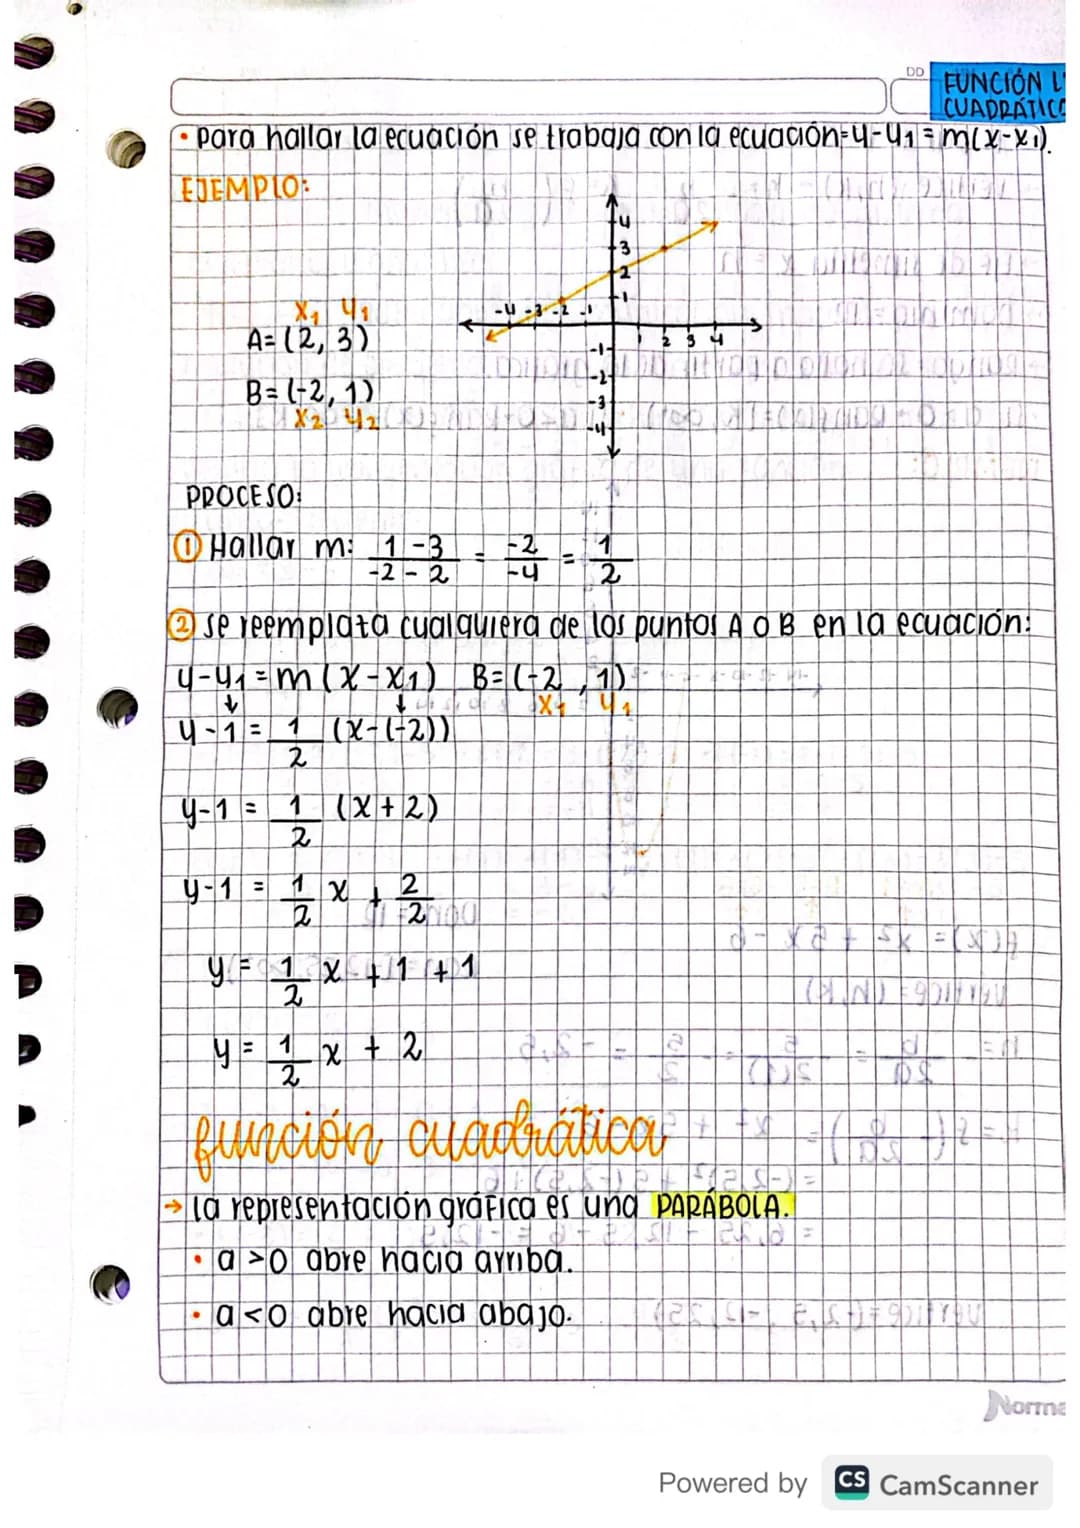 DD
FUNCIÓN L
CUADRÁTICA
• Para hallar la ecuación se trabaja con la ecuación=y-y1=m(x-x1).
EJEMPLO:
x1 y1
A=(2, 3)
B=(-2, 1)
x2 y2
4
3
2
1
-4 -3 -2 -1
1 2 3 4
-1
-2
-3
-4
PROCESO:
① Hallar m: 1-3/-2-2 = -2/-4 = 1/2
② se reemplaza cualquiera de los puntos A o B en la ecuación:
y-y1=m(x-x1) B=(-2, 1)
↓ ↓ x1 y1
y-1= 1/2 (x-(-2))
y-1 = 1/2 (x+2)
y-1 = 1/2 x + 2/2
y= 1/2 x +1 +1
y= 1/2 x + 2
función cuadrática
→ la representación gráfica es una PARÁBOLA.
• a >0 abre hacia arriba.
• a <0 abre hacia abajo.
Norma
Powered by CS CamScanner